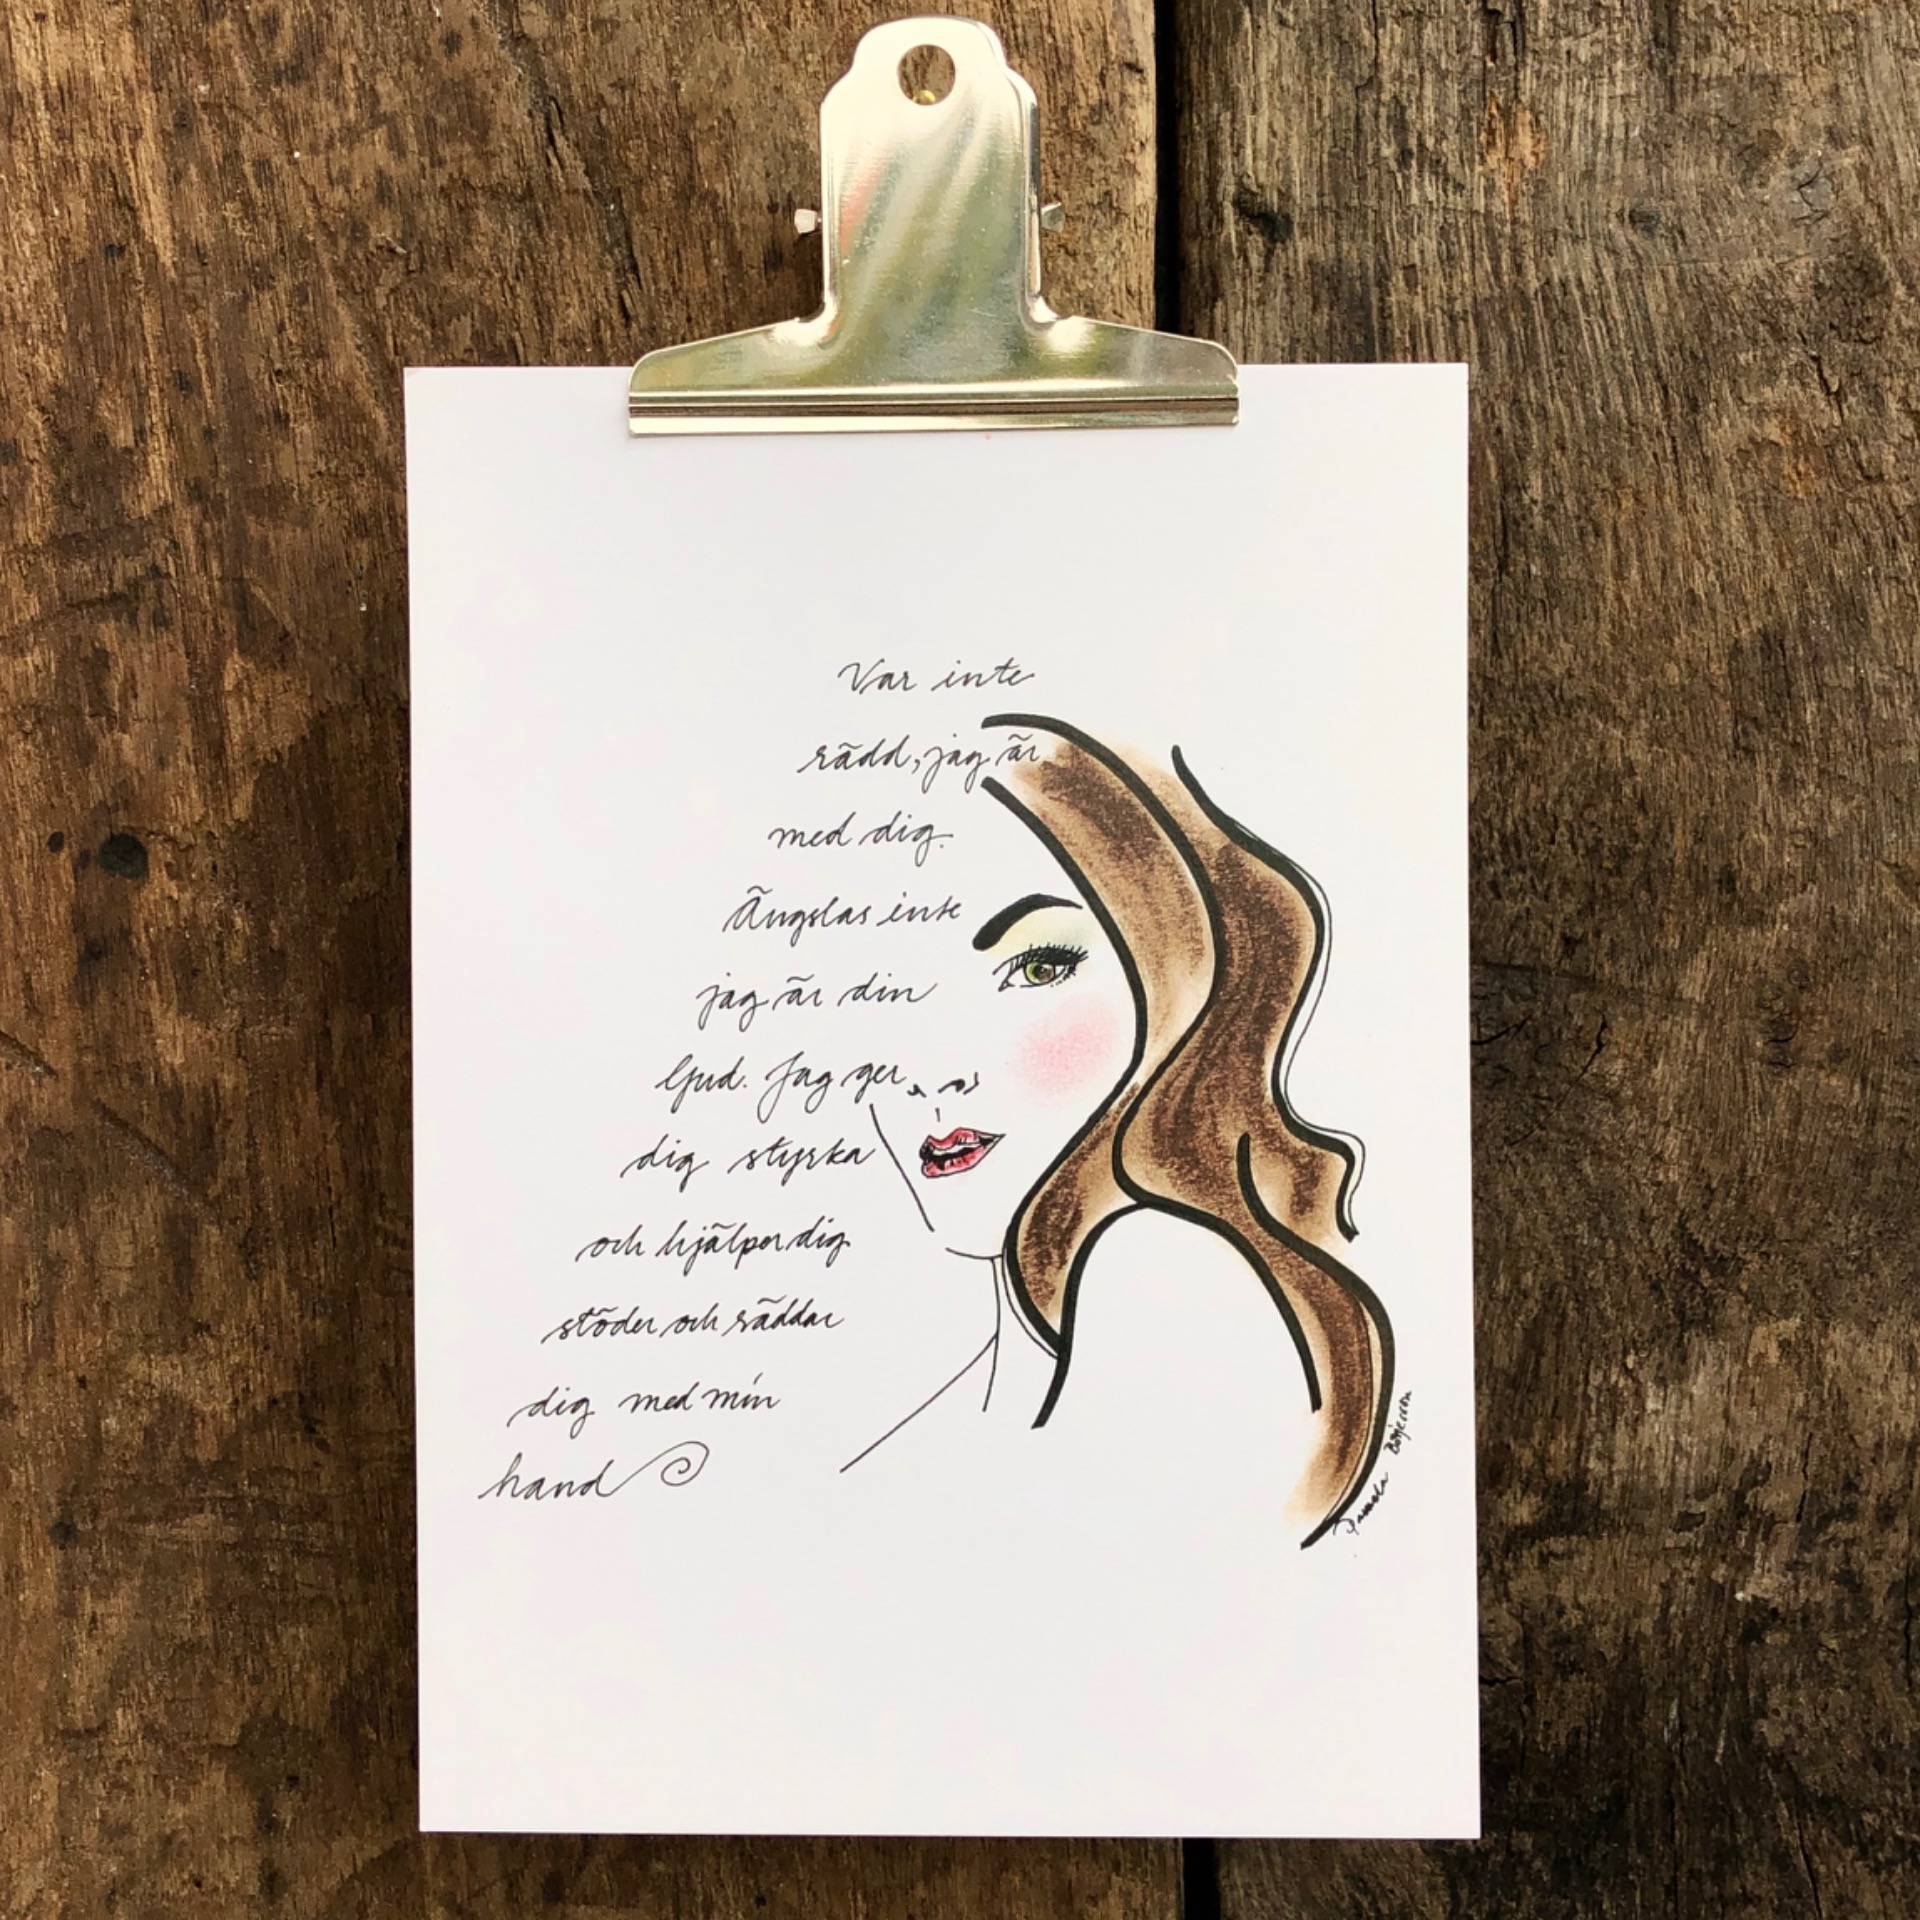 Var inte
rädd, jag är
med dig.
Ängslas inte
jag är din
Gud. Jag ger
dig styrka
och hjälper dig
stöder och räddar
dig med min
hand
Pamela Börjesson